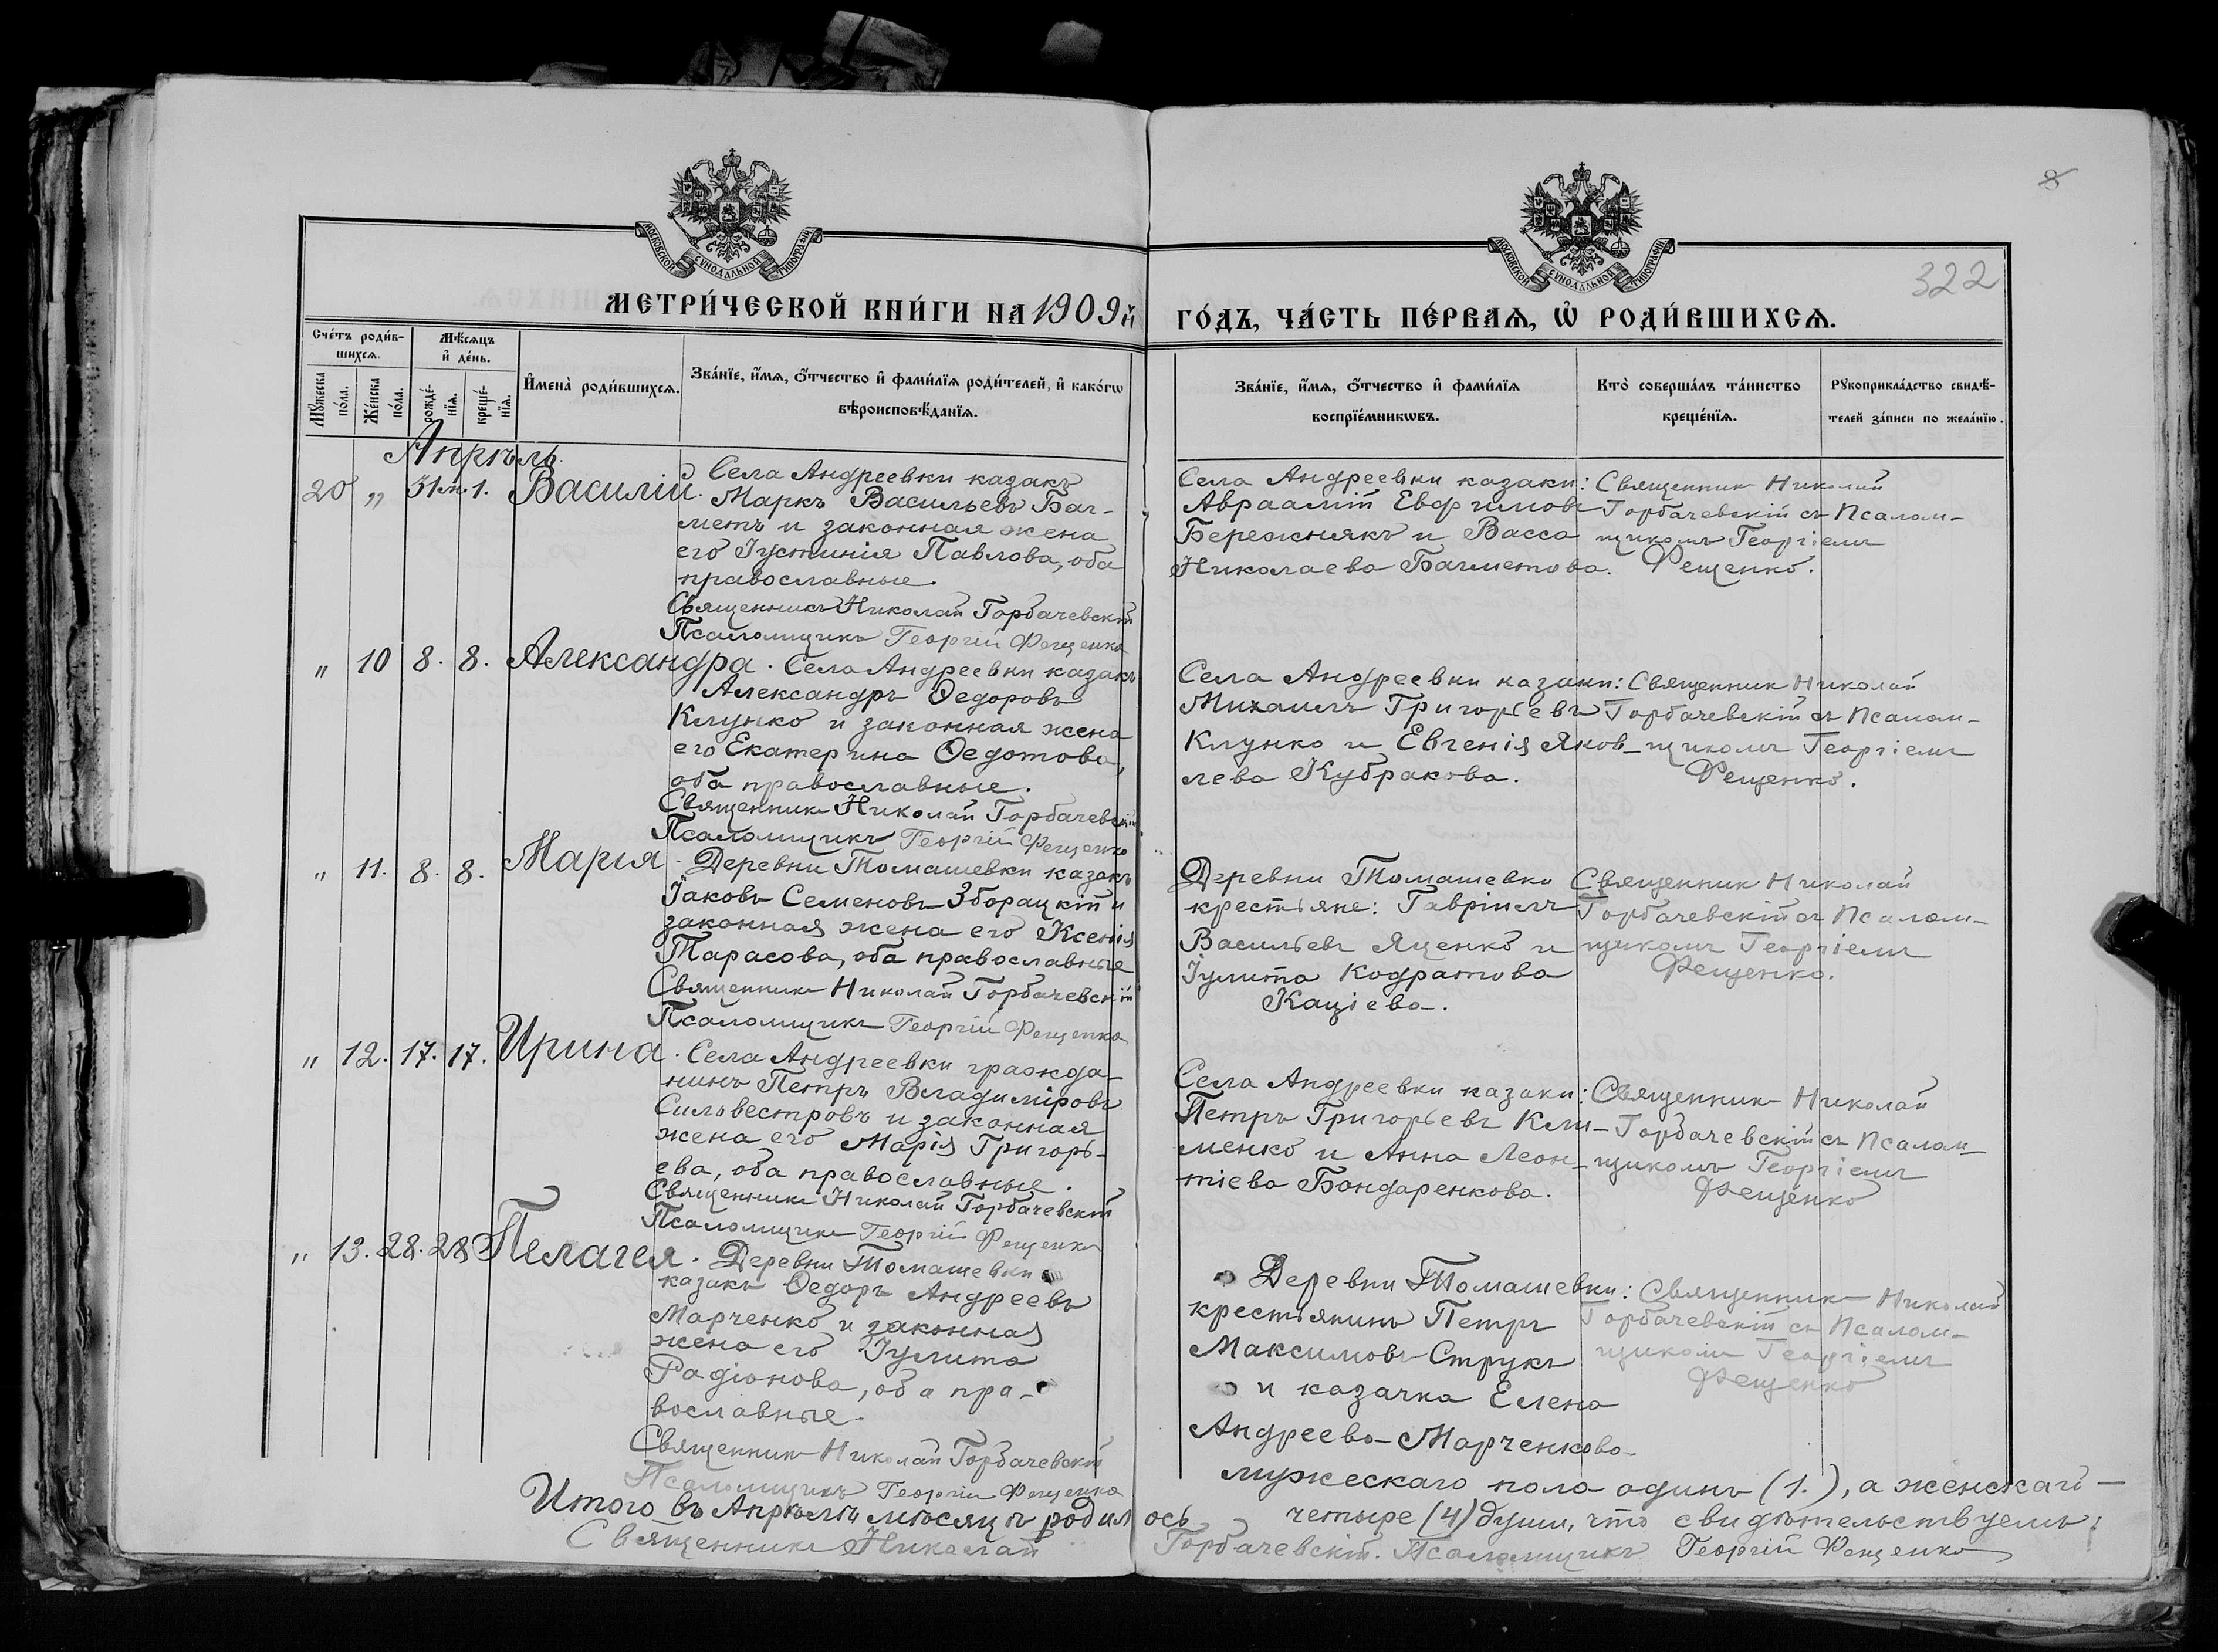 8
322
МОСКОВСКОЙ СѴНОДАЛЬНОЙ ТИПОГРАФІИ
МОСКОВСКОЙ СѴНОДАЛЬНОЙ ТИПОГРАФІИ
МЕТРИ́ЧЕСКОЙ КНИ́ГИ НА 1909й
ГО́ДЪ, ЧА́СТЬ ПЕ́РВАѦ, Ѡ҆ РОДИ́ВШИХСѦ.
Сче́тъ роди́в-
шихсѧ.
Мѣ́сѧцъ
и҆ де́нь.
Мꙋ́жеска по́ла.
Же́нска по́ла.
рожде́-
нїѧ.
креще́-
нїѧ.
И҆мена̀ роди́вшихсѧ.
Зва́нїе, и҆́мѧ, ѻ҆́тчество и҆ фами́лїѧ роди́телей, и҆ како́гѡ
вѣроисповѣ́данїѧ.
Зва́нїе, и҆́мѧ, ѻ҆́тчество и҆ фами́лїѧ
воспрїе́мникѡвъ.
Кто̀ соверша́лъ та́инство
креще́нїѧ.
Рꙋкоприкла́дство свидѣ́-
телей за́писи по жела́нїю.
Апрѣль.
20 „ 31 м. 1. Василій.
Села Андреевки казакъ
Маркъ Васильевъ Баг-
метъ и законная жена
его Іустинія Павлова, оба
православные.
Священникъ Николай Горбачевскій
Псаломщикъ Георгій Фещенко
Села Андреевки казаки:
Авраамій Евфимовъ
Бережнякъ и Васса
Николаева Багметова.
Священникъ Николай
Горбачевскій съ Псалом-
щикомъ Георгіемъ
Фещенко.
„ 10 8. 8. Александра.
Села Андреевки казакъ
Александръ Ѳедоровъ
Клунко и законная жена
его Екатерина Ѳедотова,
оба православные.
Священникъ Николай Горбачевскій
Псаломщикъ Георгій Фещенко
Села Андреевки казаки:
Михаилъ Григорьевъ
Клунко и Евгенія Яков-
лева Кубракова.
Священникъ Николай
Горбачевскій съ Псалом-
щикомъ Георгіемъ
Фещенко.
„ 11. 8. 8. Марія.
Деревни Томашевки казакъ
Іаковъ Семеновъ Зборацкій и
законная жена его Ксенія
Тарасова, оба православные
Священникъ Николай Горбачевскій
Псаломщикъ Георгій Фещенко
Деревни Томашевки
крестьяне: Гавріилъ
Васильевъ Яценко и
Іулита Кодратова
Кацієва.
Священникъ Николай
Горбачевскій съ Псалом-
щикомъ Георгіемъ
Фещенко.
„ 12. 17. 17. Ирина.
Села Андреевки гражда-
нинъ Петръ Владиміровъ
Сильвестровъ и законная
жена его Марія Григорь-
ева, оба православные.
Священникъ Николай Горбачевскій
Псаломщикъ Георгій Фещенко
Села Андреевки казаки:
Петръ Григорьевъ Кли-
менко и Анна Леон-
тіева Бондаренкова.
Священникъ Николай
Горбачевскій съ Псалом-
щикомъ Георгіемъ
Фещенко
„ 13. 28. 28 Пелагея.
Деревни Томашевки
казакъ Ѳедоръ Андреевъ
Марченко и законная
жена его Іулита
Радіонова, оба пра-
вославные.
Священникъ Николай Горбачевскій
Псаломщикъ Георгій Фещенко
Деревни Томашевки:
крестьянинъ Петръ
Максимовъ Струкъ
и казачка Елена
Андреева Марченкова
Священникъ Николай
Горбачевскій съ Псалом-
щикомъ Георгіемъ
Фещенко
Итого въ Апрѣлѣ мѣсяцѣ родилось
мужескаго пола одинъ (1.), а женскаго —
четыре (4) души, что свидѣтельствуемъ:
Священникъ Николай Горбачевскій. Псаломщикъ Георгій Фещенко